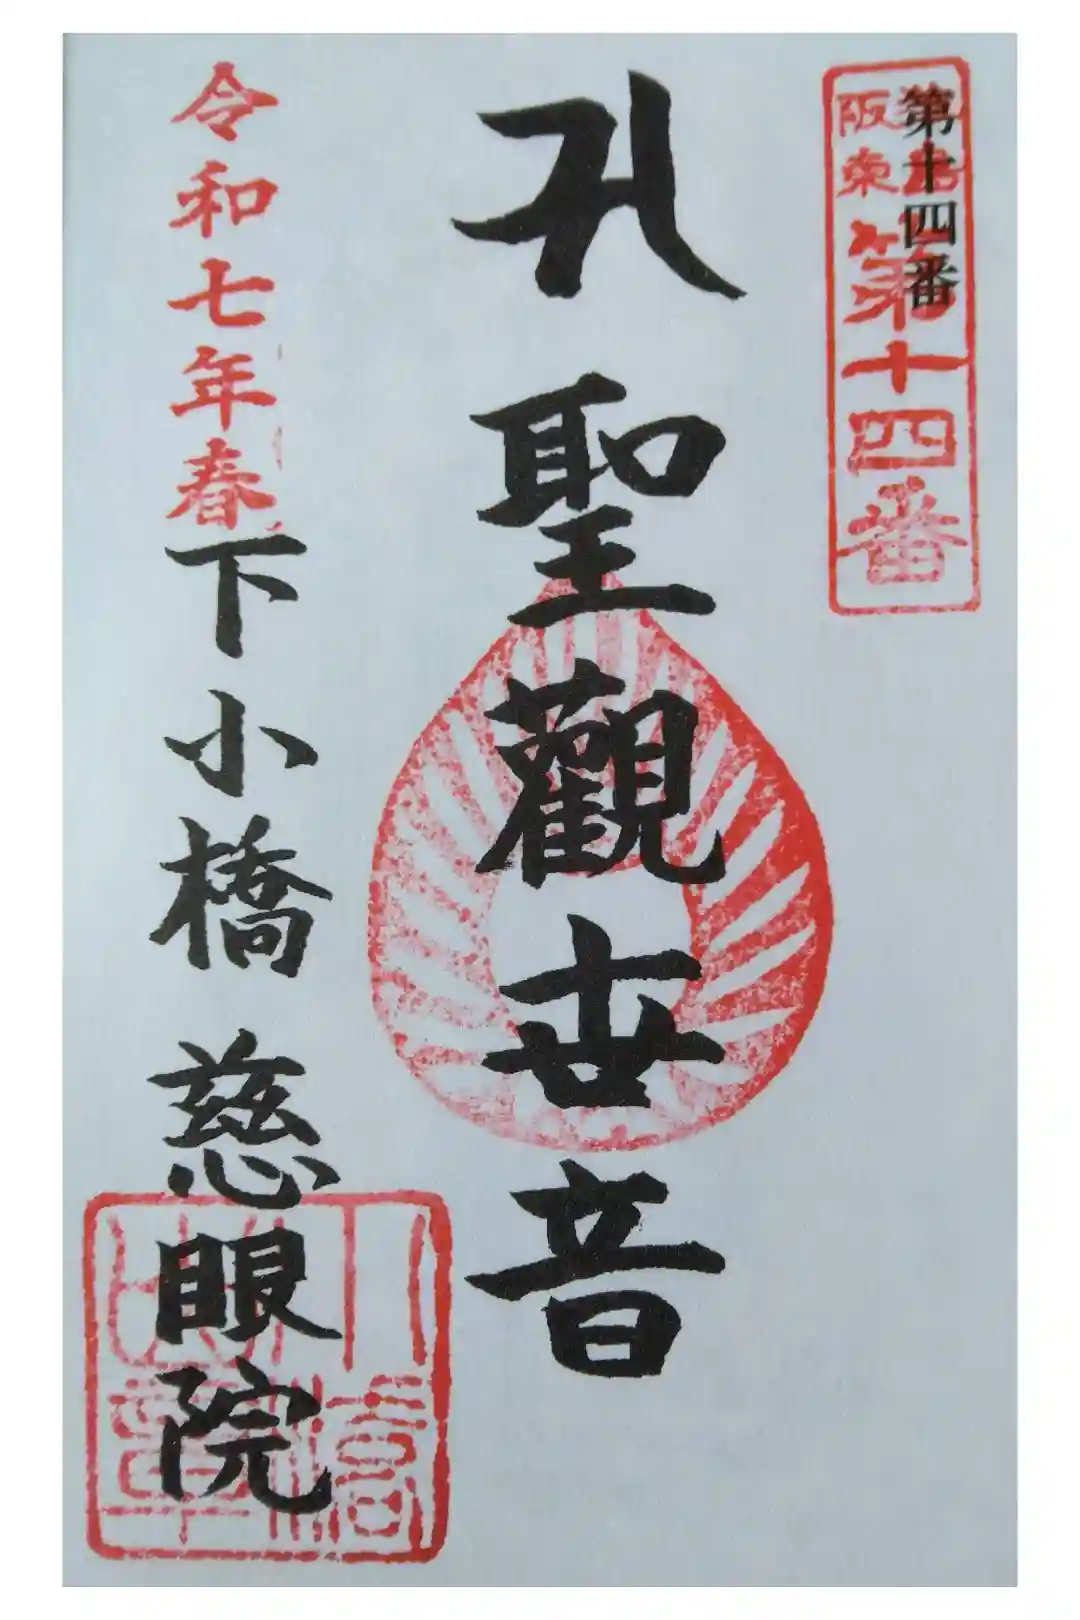 第十四番
阪東
第十四番
聖觀世音
令和七年春
下小橋 慈眼院